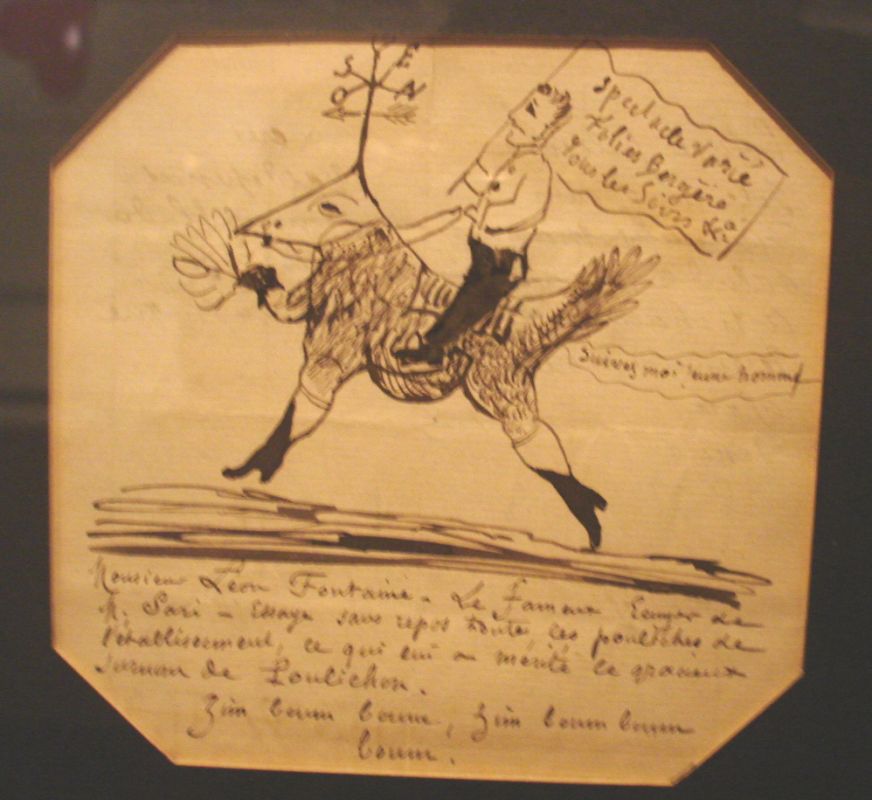 S E
O N
Spectacle Varié
Folies Bergère
Tous les Soirs à
Suivez moi jeune homme
Monsieur Léon Fontaine - Le fameux Ecuyer de
M. Sari - Essaye sans repos toutes les pouliches de
l'établissement, ce qui lui a mérité le gracieux
surnom de Poulichon.
Zim boum boum, Zim boum boum
boum.